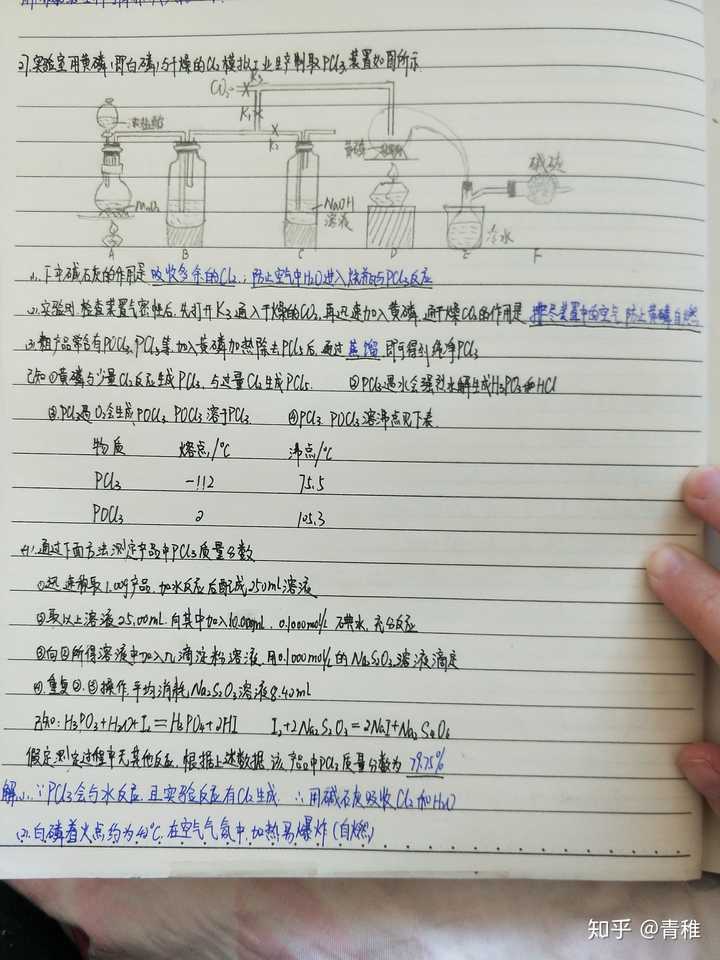 27.实验室用黄磷(即白磷)与干燥的Cl₂模拟工业生产制取PCl₃,装置如图所示
CO₂ K₃
K₁
K₂
浓盐酸
MnO₂
NaOH
溶液
黄磷
碱石灰
冷水
A B C D E F
(1).下来碱石灰的作用是 吸收多余的Cl₂;防止空气中H₂O进入烧瓶与PCl₃反应
(2).实验时,检查装置气密性后,先打开K₃通入干燥的CO₂,再迅速加入黄磷,通干燥CO₂的作用是 排尽装置中的空气 防止黄磷自燃
(3).粗产品常含有POCl₃、PCl₅等,加入黄磷加热除去PCl₅后,通过 蒸馏 即可得到纯净PCl₃
已知①黄磷与少量Cl₂反应生成PCl₃,与过量Cl₂生成PCl₅. ②PCl₃遇水会强烈水解生成H₃PO₃和HCl
③.PCl₃遇O₂会生成POCl₃ POCl₃溶于PCl₃. ④PCl₃ POCl₃溶沸点见下表.
物质 熔点/℃ 沸点/℃
PCl₃ -112 75.5
POCl₃ 2 105.3
(4).通过下面方法测定产品中PCl₃质量分数
①迅速称取1.00g产品,加水反应后配成250mL溶液
②取以上溶液25.00mL.向其中加入10.00mL、0.1000mol/L 碘水,充分反应
③向②所得溶液中加入几滴淀粉溶液,用0.1000mol/L的Na₂S₂O₃溶液滴定
④.重复②.③操作,平均消耗Na₂S₂O₃溶液8.40mL
已知:H₃PO₃+H₂O+I₂=H₃PO₄+2HI I₂+2Na₂S₂O₃=2NaI+Na₂S₄O₆
假定测定过程中无其他反应,根据上述数据,该产品中PCl₃质量分数为 79.75%
解.(1).∵PCl₃会与水反应 且实验反应有Cl₂生成. ∴用碱石灰吸收Cl₂和H₂O
(2).白磷着火点约为40℃.在空气气氛中,加热易爆炸(自燃)
知乎 @青稚